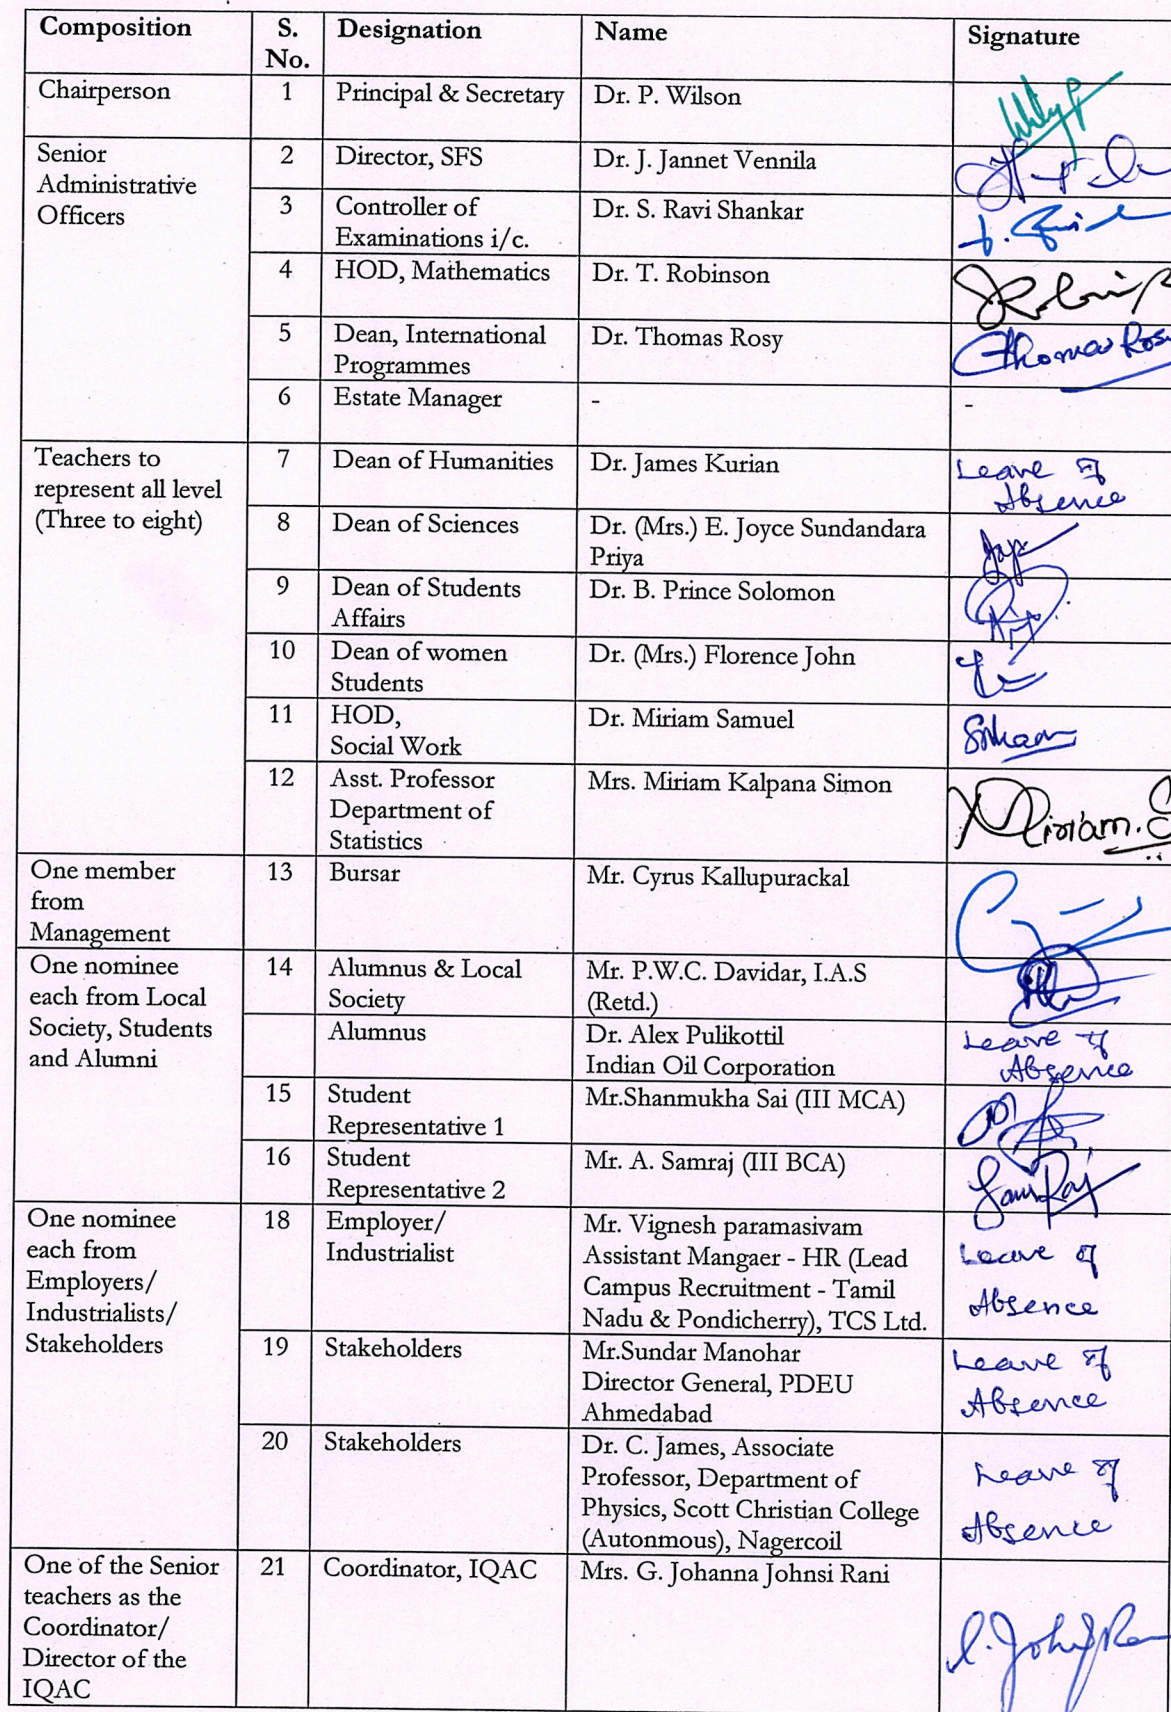 Composition S. No. Designation Name Signature
Chairperson 1 Principal & Secretary Dr. P. Wilson
Senior Administrative Officers 2 Director, SFS Dr. J. Jannet Vennila
3 Controller of Examinations i/c. Dr. S. Ravi Shankar
4 HOD, Mathematics Dr. T. Robinson
5 Dean, International Programmes Dr. Thomas Rosy Thomas Rosy
6 Estate Manager - -
Teachers to represent all level (Three to eight) 7 Dean of Humanities Dr. James Kurian Leave of Absence
8 Dean of Sciences Dr. (Mrs.) E. Joyce Sundandara Priya
9 Dean of Students Affairs Dr. B. Prince Solomon
10 Dean of women Students Dr. (Mrs.) Florence John
11 HOD, Social Work Dr. Miriam Samuel
12 Asst. Professor Department of Statistics Mrs. Miriam Kalpana Simon Miriam. S
One member from Management 13 Bursar Mr. Cyrus Kallupurackal
One nominee each from Local Society, Students and Alumni 14 Alumnus & Local Society Mr. P.W.C. Davidar, I.A.S (Retd.)
Alumnus Dr. Alex Pulikottil Indian Oil Corporation Leave of Absence
15 Student Representative 1 Mr.Shanmukha Sai (III MCA)
16 Student Representative 2 Mr. A. Samraj (III BCA)
One nominee each from Employers/ Industrialists/ Stakeholders 18 Employer/ Industrialist Mr. Vignesh paramasivam Assistant Mangaer - HR (Lead Campus Recruitment - Tamil Nadu & Pondicherry), TCS Ltd. Leave of Absence
19 Stakeholders Mr.Sundar Manohar Director General, PDEU Ahmedabad Leave of Absence
20 Stakeholders Dr. C. James, Associate Professor, Department of Physics, Scott Christian College (Autonmous), Nagercoil Leave of Absence
One of the Senior teachers as the Coordinator/ Director of the IQAC 21 Coordinator, IQAC Mrs. G. Johanna Johnsi Rani